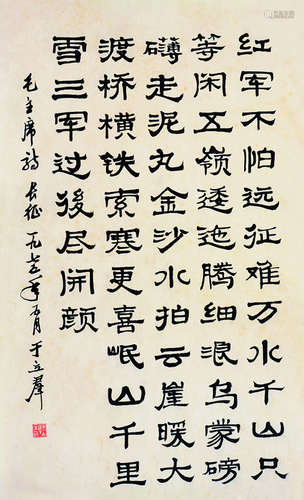 红军不怕远征难万水千山只
等闲五嶺逶迤腾细浪乌蒙磅
礴走泥丸金沙水拍云崖暖大
渡桥横铁索寒更喜岷山千里
雪三军过後尽开颜
毛主席诗 长征 一九七 年 月 于立羣